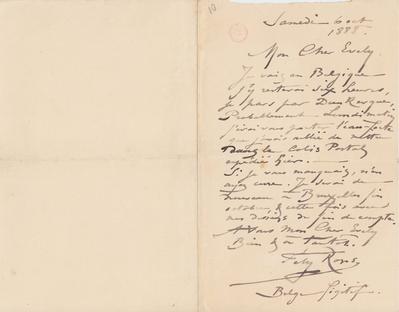 10
Samedi 6 oct
1888.
Mon Cher Evely.
Je vais en Belgique
j'y resterai six heures,
je pars par Dunkerque,
Probablement Lundi matin
j'irai vous porter l'eau forte
que j'avais oublié de mettre
dans le Colis Postal
expédié hier.
Si je vous manquais, n'en
ayez cure. Je serai de
nouveau à Bruxelles fin
octobre, & cette fois avec
nos dessins de fin de compte.
A Vous Mon Cher Evely
Bien & à Tantôt.
Fély Rops
Belge